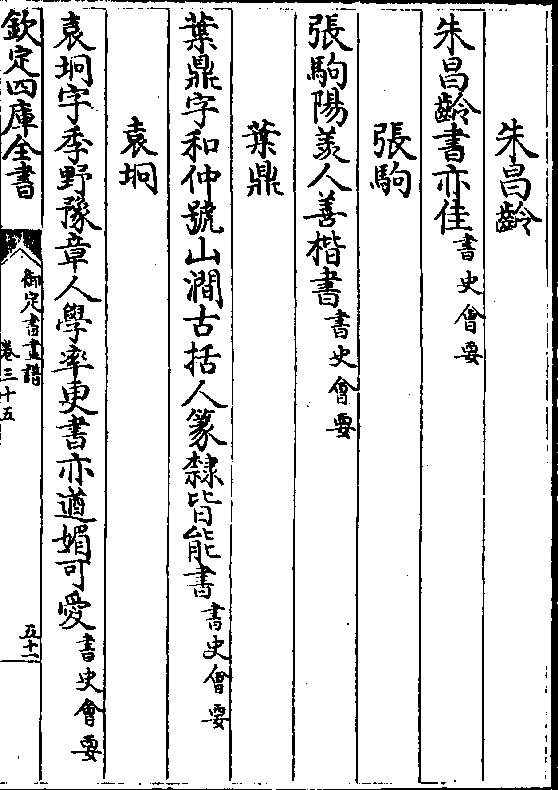 朱昌齡
朱昌齡書亦佳書史會要
張駒
張駒陽羨人善楷書書史會要
葉鼎
葉鼎字和仲號山澗古括人篆隸皆能書書史會要
袁坰
袁坰字季野豫章人學率更書亦遒媚可愛書史會要
欽定四庫全書
御定書畫譜
卷三十五
五十一